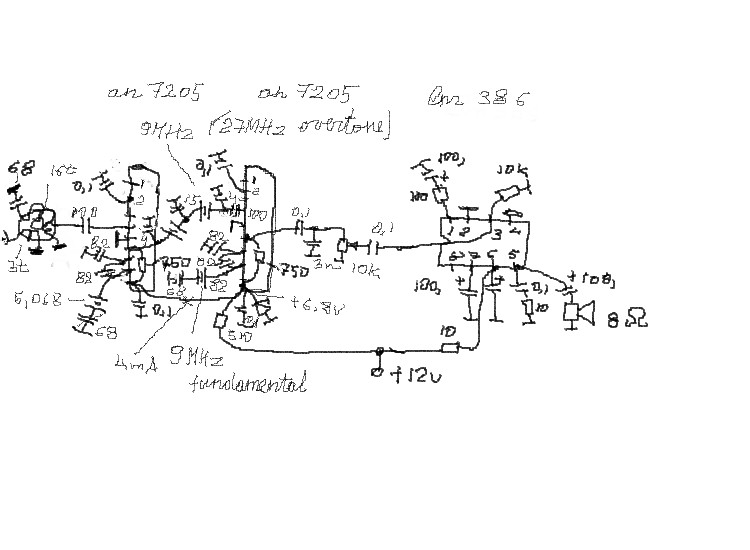 an 7205 an 7205 Lm 386
9MHz (27MHz overtone)
68 16t 0,1 0,1 100, 10k
100 1 2 15 1 2 4 100 0,1 0,1 100 1 2 3 4
3t 82 4 82 3n 10k 5
82 750 82 750 100, 0,1 + 100,
5,068 68 0,1 510 +6,8v 10 10 8Ω
4mA 9MHz +12v
fundamental